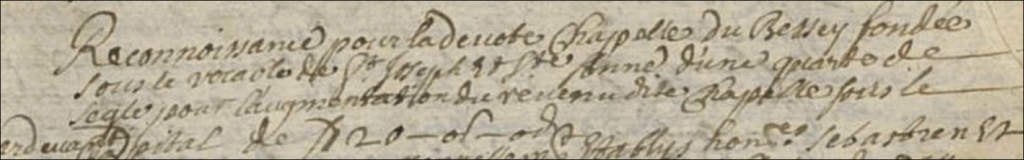 Reconnoissance pour la devote Chapelle du Bessey fondée
sous le vocable de St Joseph et Ste Anne d'une quarte de
segle pour l'augmentation du revenu dite Chapelle sous le
Capital de # 20 - 0s - 0d Establys hon.es Sebastien Et